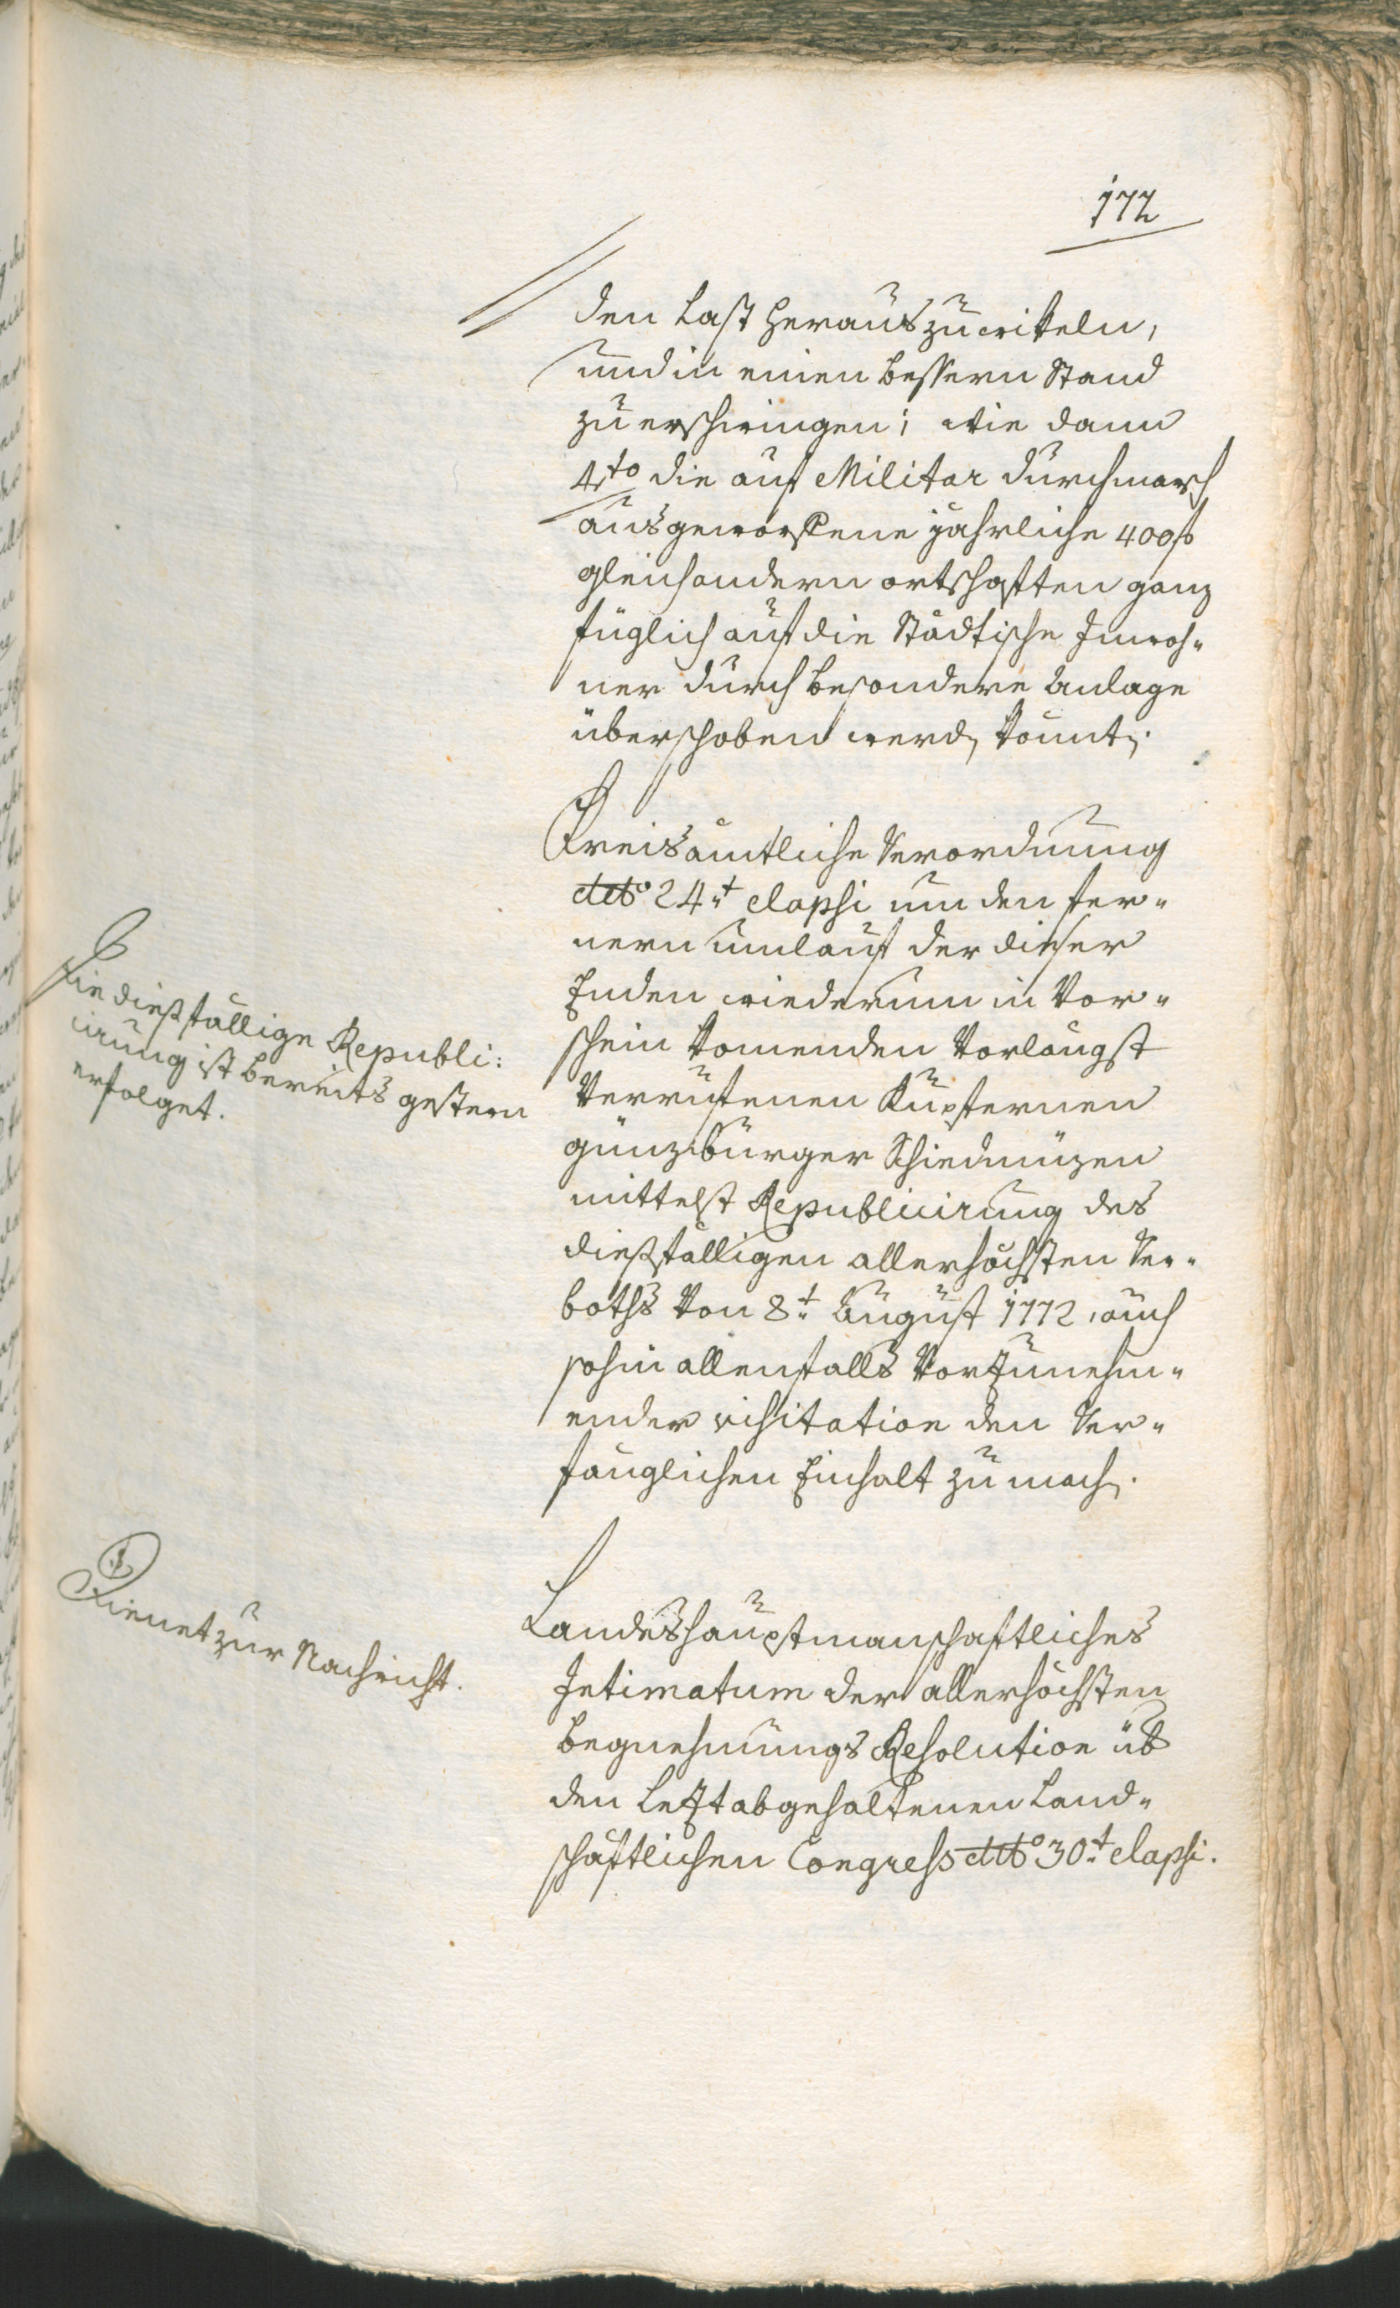 172
den Last herauszuwikeln,
und in einen bessern Stand
zu erschwingen; wie dann
4to die auf Militar durchmarsch
ausgeworffene jährliche 400 f
gleich andern ortschafften ganz
füglich auf die Städtische Inwoh„
ner durch besondere Anlage
überschoben werd, könnt.
Kreisämtliche Verordnung
ddto 24t elapsi um den fer„
nern umlauf der dieser
Enden wiederum in Vor„
schein komenden Vorlängst
Verrufenen Kupfernen
günzburger Schiedmüzen
mittelst Republicirung des
dießfälligen allerhöchsten Ver„
boths Von 8t August 1772, auch
sohin allenfalls Vorzunehm„
ender visitation den Ver„
fänglichen Einhalt zu mach.
Die dießfällige Republi:
cirung ist bereits gestern
erfolget.
Landeshauptmanschaftliches
Intimatum der allerhöchsten
Begnehmungs Resolution üb
den Letzt abgehaltenen Land„
schäftlichen Congress ddto 30t elapsi.
Dienet zur Nachricht.